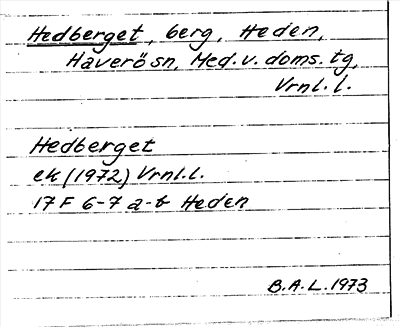 Hedberget, berg, Heden,
Haverö sn, Med. v. doms. tg,
Vrnl. l.
Hedberget
ek (1972) Vrnl. l.
17 F 6-7 a-b Heden
B.A.L. 1973